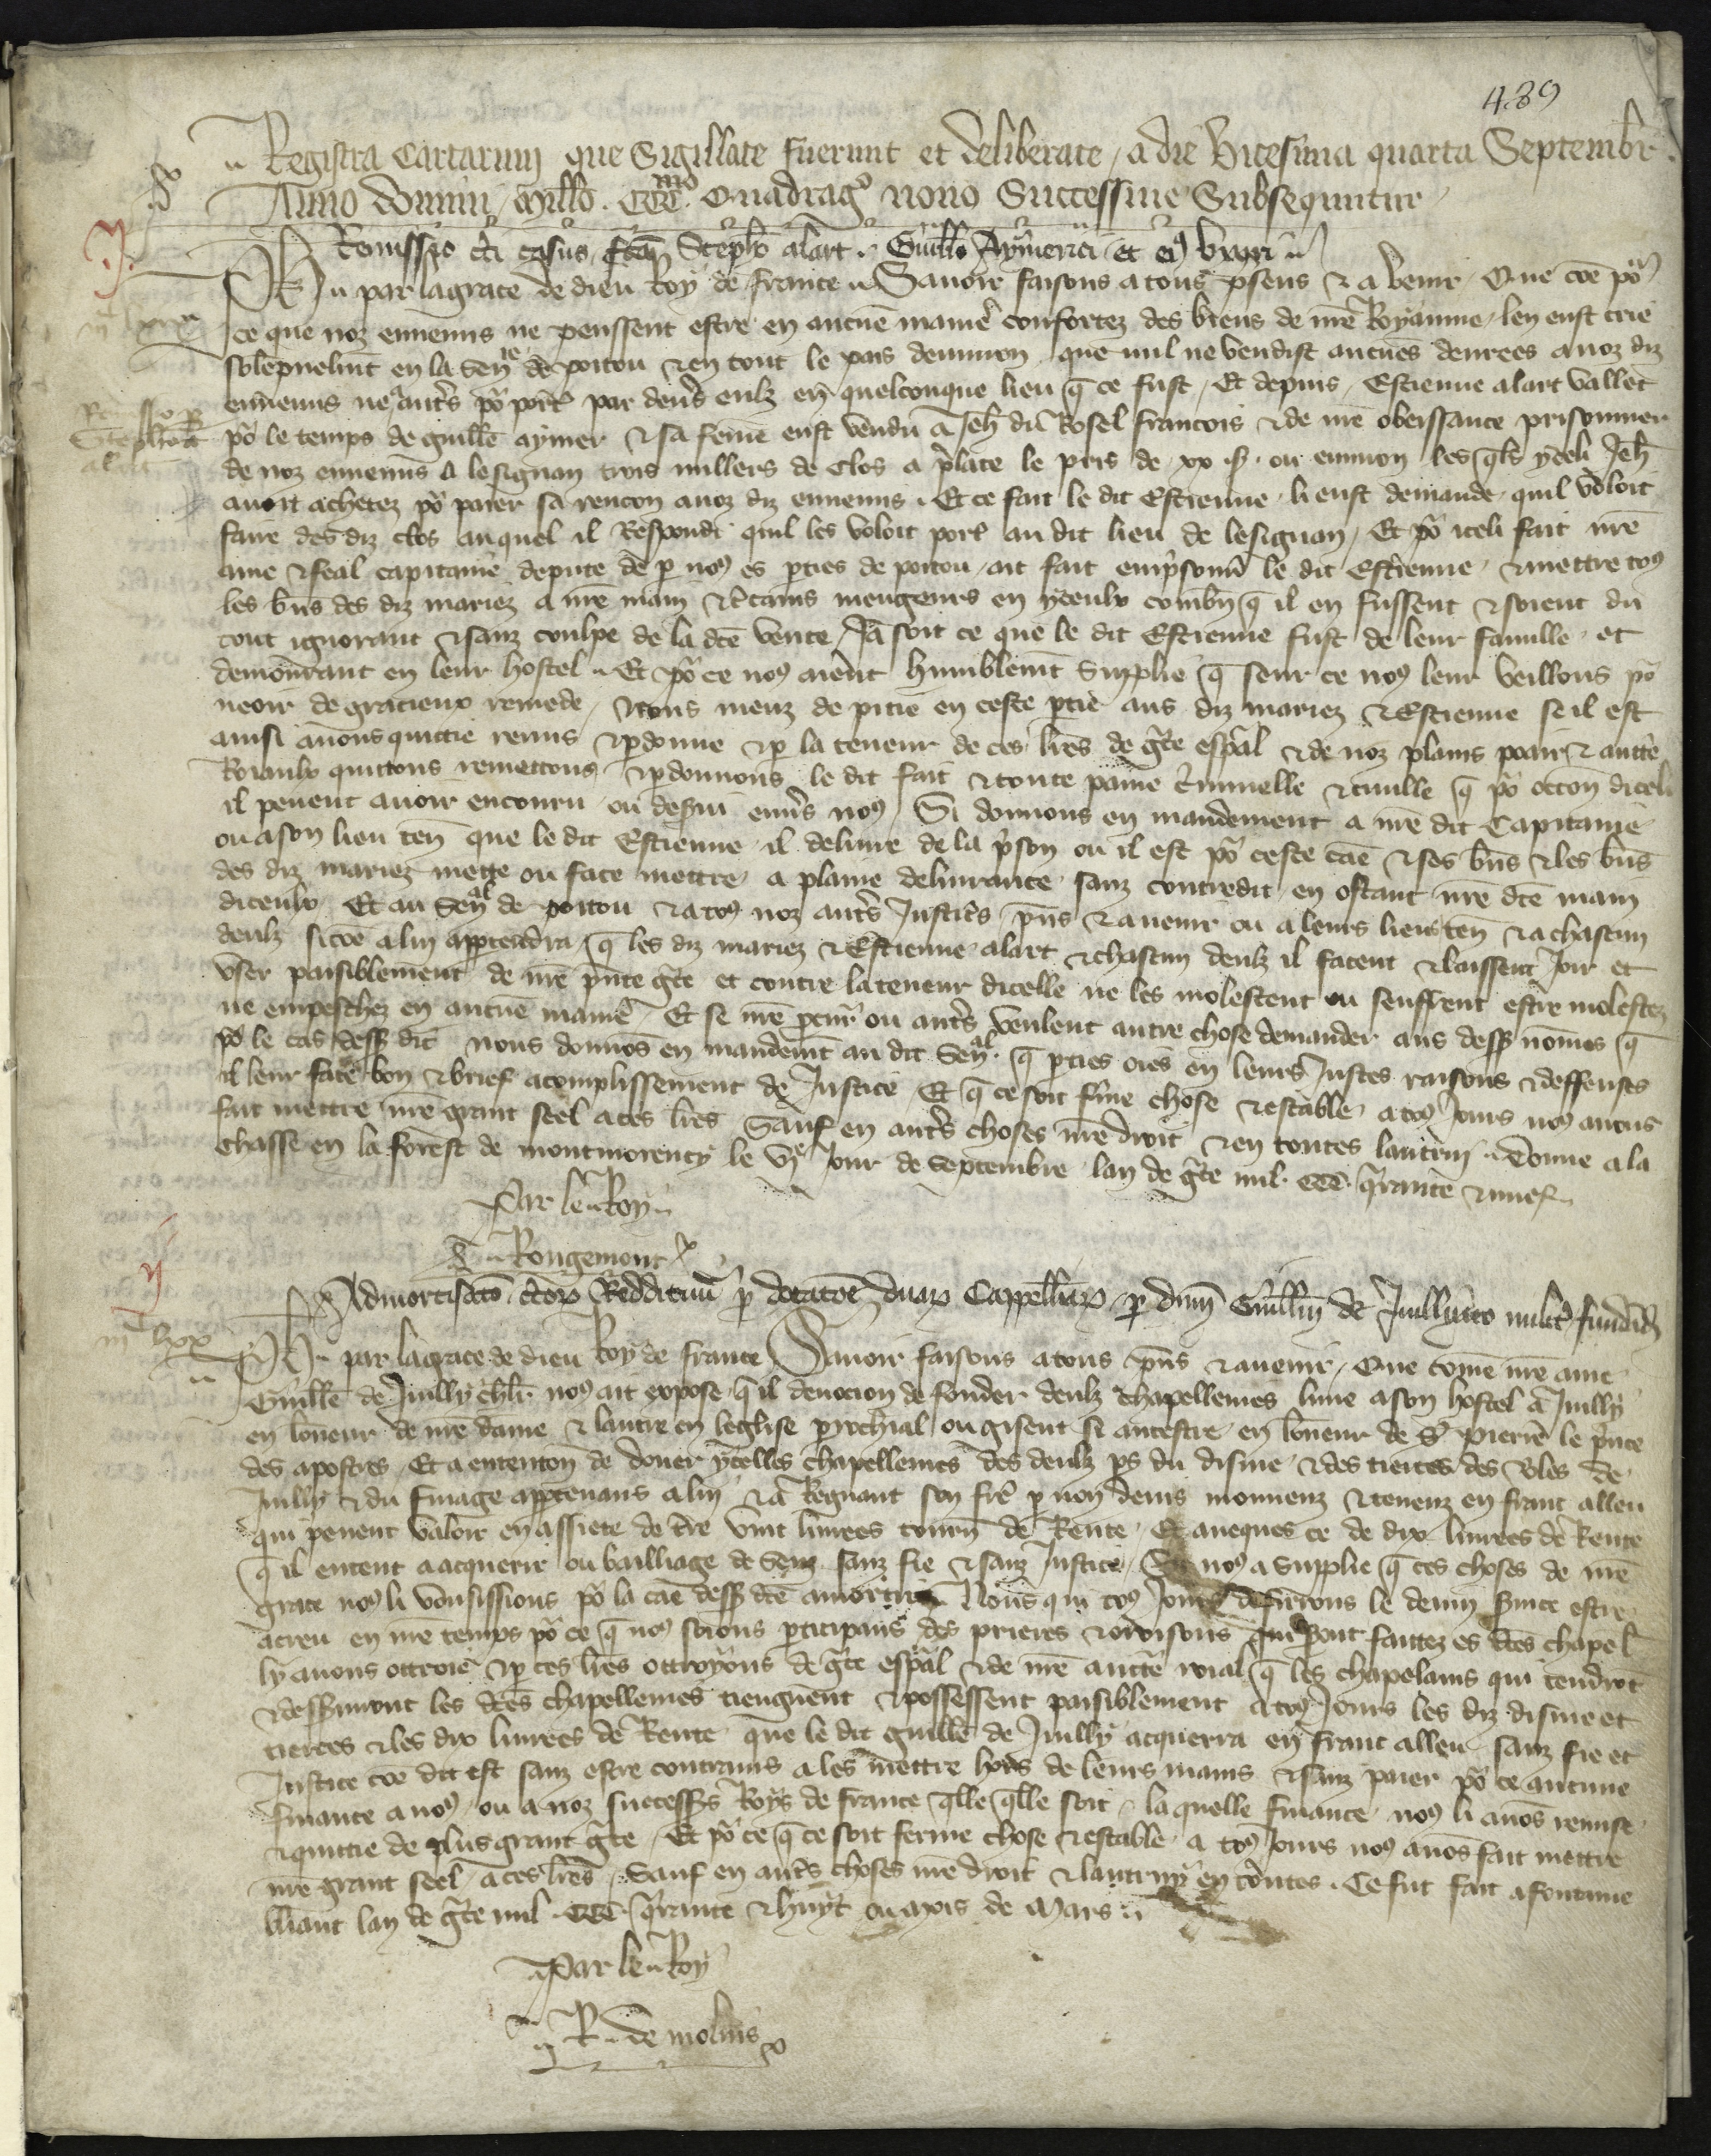 489
Registra Cartarum que Sigillate fuerunt et deliberate, a die vicesima quarta Septembr.
Anno domini millo. CCCmo Quadrago nono Successive Subsequntur
Remissio cti casus fca Stepho alart. Guillo Aymerici et eiq uxori
j.
Ph par lagrace de dieu Roy de france. Savoir faisons a tous psens & a venir Que coe por
iiijxx
ce que noz ennemis ne peussent estre en aucue maniere confortez des biens de nre Royaume, len eust crie
solepnelmt en la Senie de poitou & en tout le pais denviron que nul ne vendist aucues denrees a noz diz
ennemis ne a autrs por port par devs eulz en quelconque lieu q ce fust, Et depuis, Estienne alart vallet
Remissio p Stepho alart
por le temps de guille aymer & sa feme eust vendu a Jeh du Rosel francois & de nre obeissance prisonnier
de noz ennemis a lesignan trois milliers de Clos a plate le pris de xx s. ou environ les qls yceli Jeh
avoit achetez por paier sa rencon a noz diz ennemis. Et ce fait le dit Estienne li eust demande quil voloit
faire des diz clos auquel il Respondi quil les voloit port au dit lieu de lesignan, Et por iceli fait nre
ame & feal capitaine depute de p nos es pties de poitou, ait fait emprisonn le dit Estienne, & mettre tos
les bns des diz mariez a nre main & ctains mengeurs en yceulx combn q il en fussent & soient du
tout ignorant & sanz coulpe de la dce vente, Ja soit ce que le dit Estienne fust de leur famille et
demourant en leur hostel. Et por ce nos aient humblemt Supplie q seur ce nos leur veillons por
veoir de gracieux remede, & nous meuz de pitie en ceste ptie aus diz mariez & Estienne se il est
ainsi avons quictie remis & pdonne & p la teneur de ces lres de gce espal & de noz plains poair & aucte
Roiaulx quittons remettons & pdonnons le dit fait & toute paine criminelle & civille q por occon diceli
il pevent avoir encouru ou desvi envs nos, Si donnons en mandement a nre dit Capitaine
ou a son lieu ten que le dit Estienne il delivre de la prison ou il est por ceste cae & ses bns & les bns
des diz mariez mette ou face mettre a plaine delivrance sanz contredit en ostant nre dce main
diceulx Et au Senal de poitou & a tos noz autrs Justicrs pns & avenir ou a leurs lieux ten & a chascun
deulz sicoe a lui apptendra q les diz mariez & Estienne alart & chascun deulz il facent & laissent joir et
user paisiblement de nre pnte gce et contre la teneur dicelle ne les molestent ou seuffrent estre molestez
ne empeschez en aucue maniere Et se nre pcur ou autrs veulent autre chose demander aus dess nomes q
por le cas dess dit nous donnos en mandemt au dit Senal. q pties oies en leurs Justes raisons & deffenses
il leur face bon & brief acomplissement de Justice Et q ce soit ferme chose & estable a tos jours nos avons
fait mettre nre grant seel a ces lres Sauf en autrs choses nre droit & en toutes lautrui. Donne a la
Chasse en la forest de montmorency le vje Jour de Septembre lan de gce mil. CCC. qrante & nuef
Par le Roy
Rougemont
ij
Admortisacio ctorz Reddituu p dotacoe duarz Cappelliarz p dnm Guillm de Juilliaco milit fundadq
iijc lxx
Ph. par lagrace de dieu Roy de france Savoir faisons a tous pns & avenir, Que come nre ame
Guille de Juilly chlr nos ait expose q il devocion de fonder deulz chapellenies lune a son hostel a Juilly
en loneur de nre dame & lautre en leglise parrochial ou gisent si ancestre en loneur de St Pierre le pnce
des apostres. Et a entencon de doner ycelles chapellenies des deulz ps du disme & des tierces des bles de
Juilly & du finage apptenans a lui & a Regnaut son fre p non devis mouvenz & tenenz en franc alleu
qui pevent valoir en assiete de tre vint livrees tourn de Rente, Et aveques ce de dix livrees de Rente
q il entent a acquerir ou bailliage de Senz sanz fie & sanz Justice, Et nos a supplie q ces choses de nre
grace nos li vousissions por la cae dess dce amortir. Nous qui tos jours desirrons le devin service estre
acreu en nre temps por ce q nos soions pticipans des prieres & oroisons qui seront faittez es dces chapel
ly avons ottroie & p ces lres ottroyons de gce espal & de nre aucte roial q les chapelains qui tendrot
& desserviront les dces chapellenies tiengnent & possessent paisiblement a tos jours les diz disme et
tierces & les dix livrees de Rente que le dit guille de Juilly acquerra en franc alleu sanz fie et
Justice coe dit est sanz estre contrains a les mettre hors de leurs mains & sanz paier por ce aucune
finance a nos, ou a noz successrs Roys de france qlle qlle soit, la quelle finance nos li avos remise
& quittie de plus grant gce, Et por ce q ce soit ferme chose & estable a tos jours nos avos fait mettre
nre grant seel a ces lres, Sauf en autrs choses nre droit & lautruy en toutes. Ce fut fait a fontaine
bliaut lan de gce mil CCC qrante & huyt ou mois de Mars
Par le Roy
R. de molins